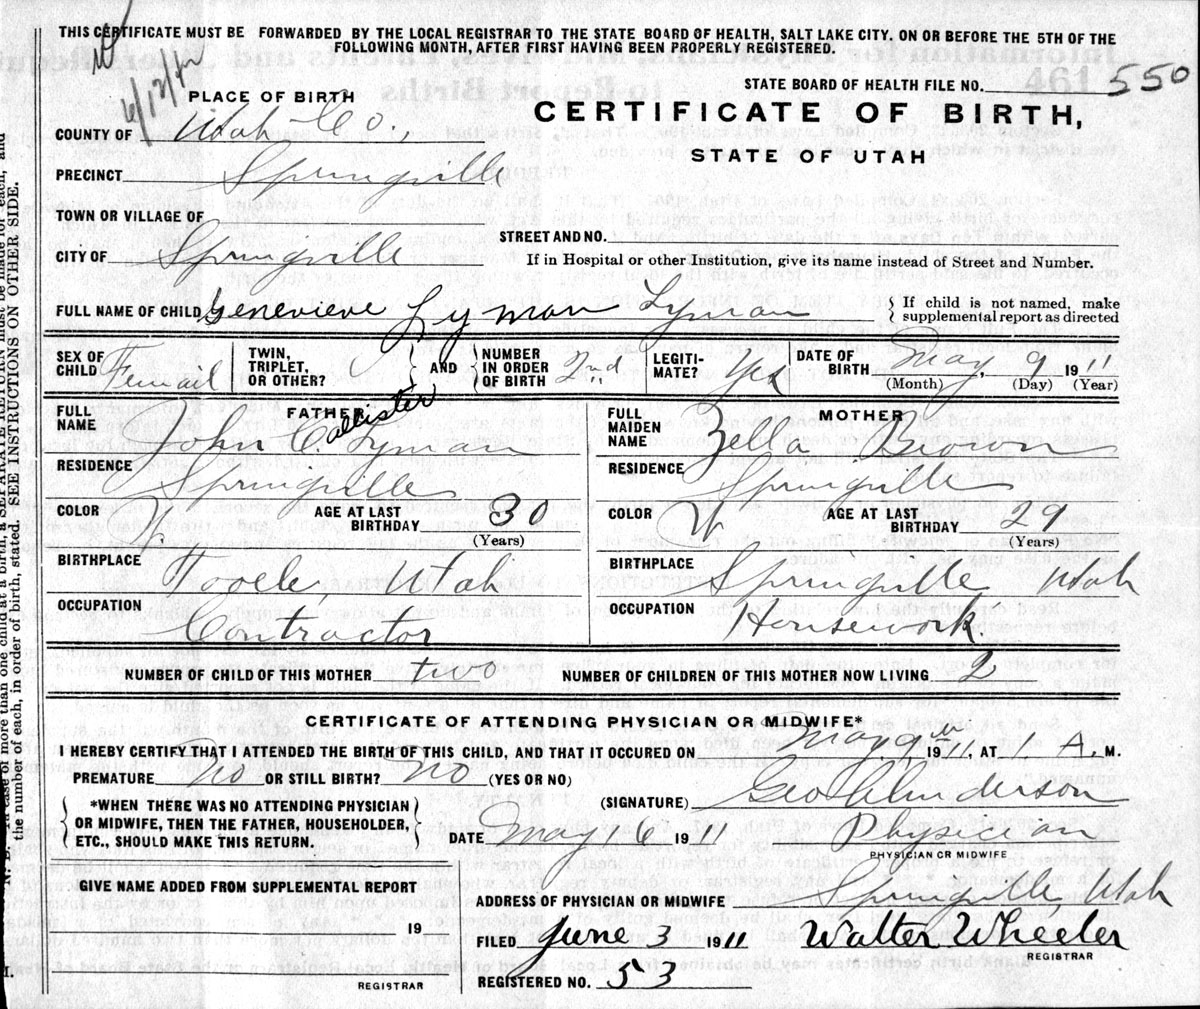 THIS CERTIFICATE MUST BE FORWARDED BY THE LOCAL REGISTRAR TO THE STATE BOARD OF HEALTH, SALT LAKE CITY, ON OR BEFORE THE 5TH OF THE
FOLLOWING MONTH, AFTER FIRST HAVING BEEN PROPERLY REGISTERED.
STATE BOARD OF HEALTH FILE NO. 461 550
PLACE OF BIRTH
CERTIFICATE OF BIRTH,
STATE OF UTAH
COUNTY OF Utah Co.,
PRECINCT Springville
TOWN OR VILLAGE OF
STREET AND NO.
CITY OF Springville
If in Hospital or other Institution, give its name instead of Street and Number.
FULL NAME OF CHILD Genevieve Lyman Lyman
{ If child is not named, make
supplemental report as directed
SEX OF CHILD Femail
TWIN, TRIPLET, OR OTHER?
{ AND } NUMBER IN ORDER OF BIRTH 2nd
LEGITIMATE? Yes
DATE OF BIRTH May, 9 1911
(Month) (Day) (Year)
FATHER
FULL NAME John Callister Lyman
MOTHER
FULL MAIDEN NAME Zella Brown
RESIDENCE Springville
RESIDENCE Springville
COLOR AGE AT LAST BIRTHDAY 30
(Years)
COLOR W AGE AT LAST BIRTHDAY 29
(Years)
BIRTHPLACE Tooele, Utah
BIRTHPLACE Springville Utah
OCCUPATION Contractor
OCCUPATION Housework.
NUMBER OF CHILD OF THIS MOTHER two
NUMBER OF CHILDREN OF THIS MOTHER NOW LIVING 2
CERTIFICATE OF ATTENDING PHYSICIAN OR MIDWIFE*
I HEREBY CERTIFY THAT I ATTENDED THE BIRTH OF THIS CHILD, AND THAT IT OCCURED ON May 9th 1911, AT 1 A. M.
PREMATURE No OR STILL BIRTH? No (YES OR NO)
(SIGNATURE) Geo Anderson
{ *WHEN THERE WAS NO ATTENDING PHYSICIAN
OR MIDWIFE, THEN THE FATHER, HOUSEHOLDER,
ETC., SHOULD MAKE THIS RETURN. }
DATE May 6 1911 Physician
PHYSICIAN OR MIDWIFE
GIVE NAME ADDED FROM SUPPLEMENTAL REPORT
ADDRESS OF PHYSICIAN OR MIDWIFE Springville, Utah
19
REGISTRAR
FILED June 3 1911 Walter Wheeler
REGISTRAR
REGISTERED NO. 53
more than one child at a birth, a SEPARATE RETURN must be made for each, and
the number of each, in order of birth, stated. SEE INSTRUCTIONS ON OTHER SIDE.